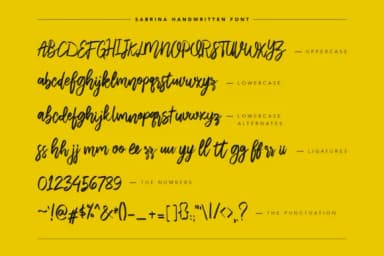 SABRINA HANDWRITTEN FONT
ABCDEFGHIJKLMNOPQRSTUVWXYZ — UPPERCASE
abcdefghijklmnopqrstuvwxyz — LOWERCASE
abcdefghijklmnopqrstuvwxyz — LOWERCASE
ALTERNATES
ss hh jj mm oo ee rr uu yy ll tt gg ff ii — LIGATURES
0123456789 — THE NUMBERS
~'!@#$%^&*()-_+=[]{}:;"'\|/<>,.? — THE PUNCTUATION